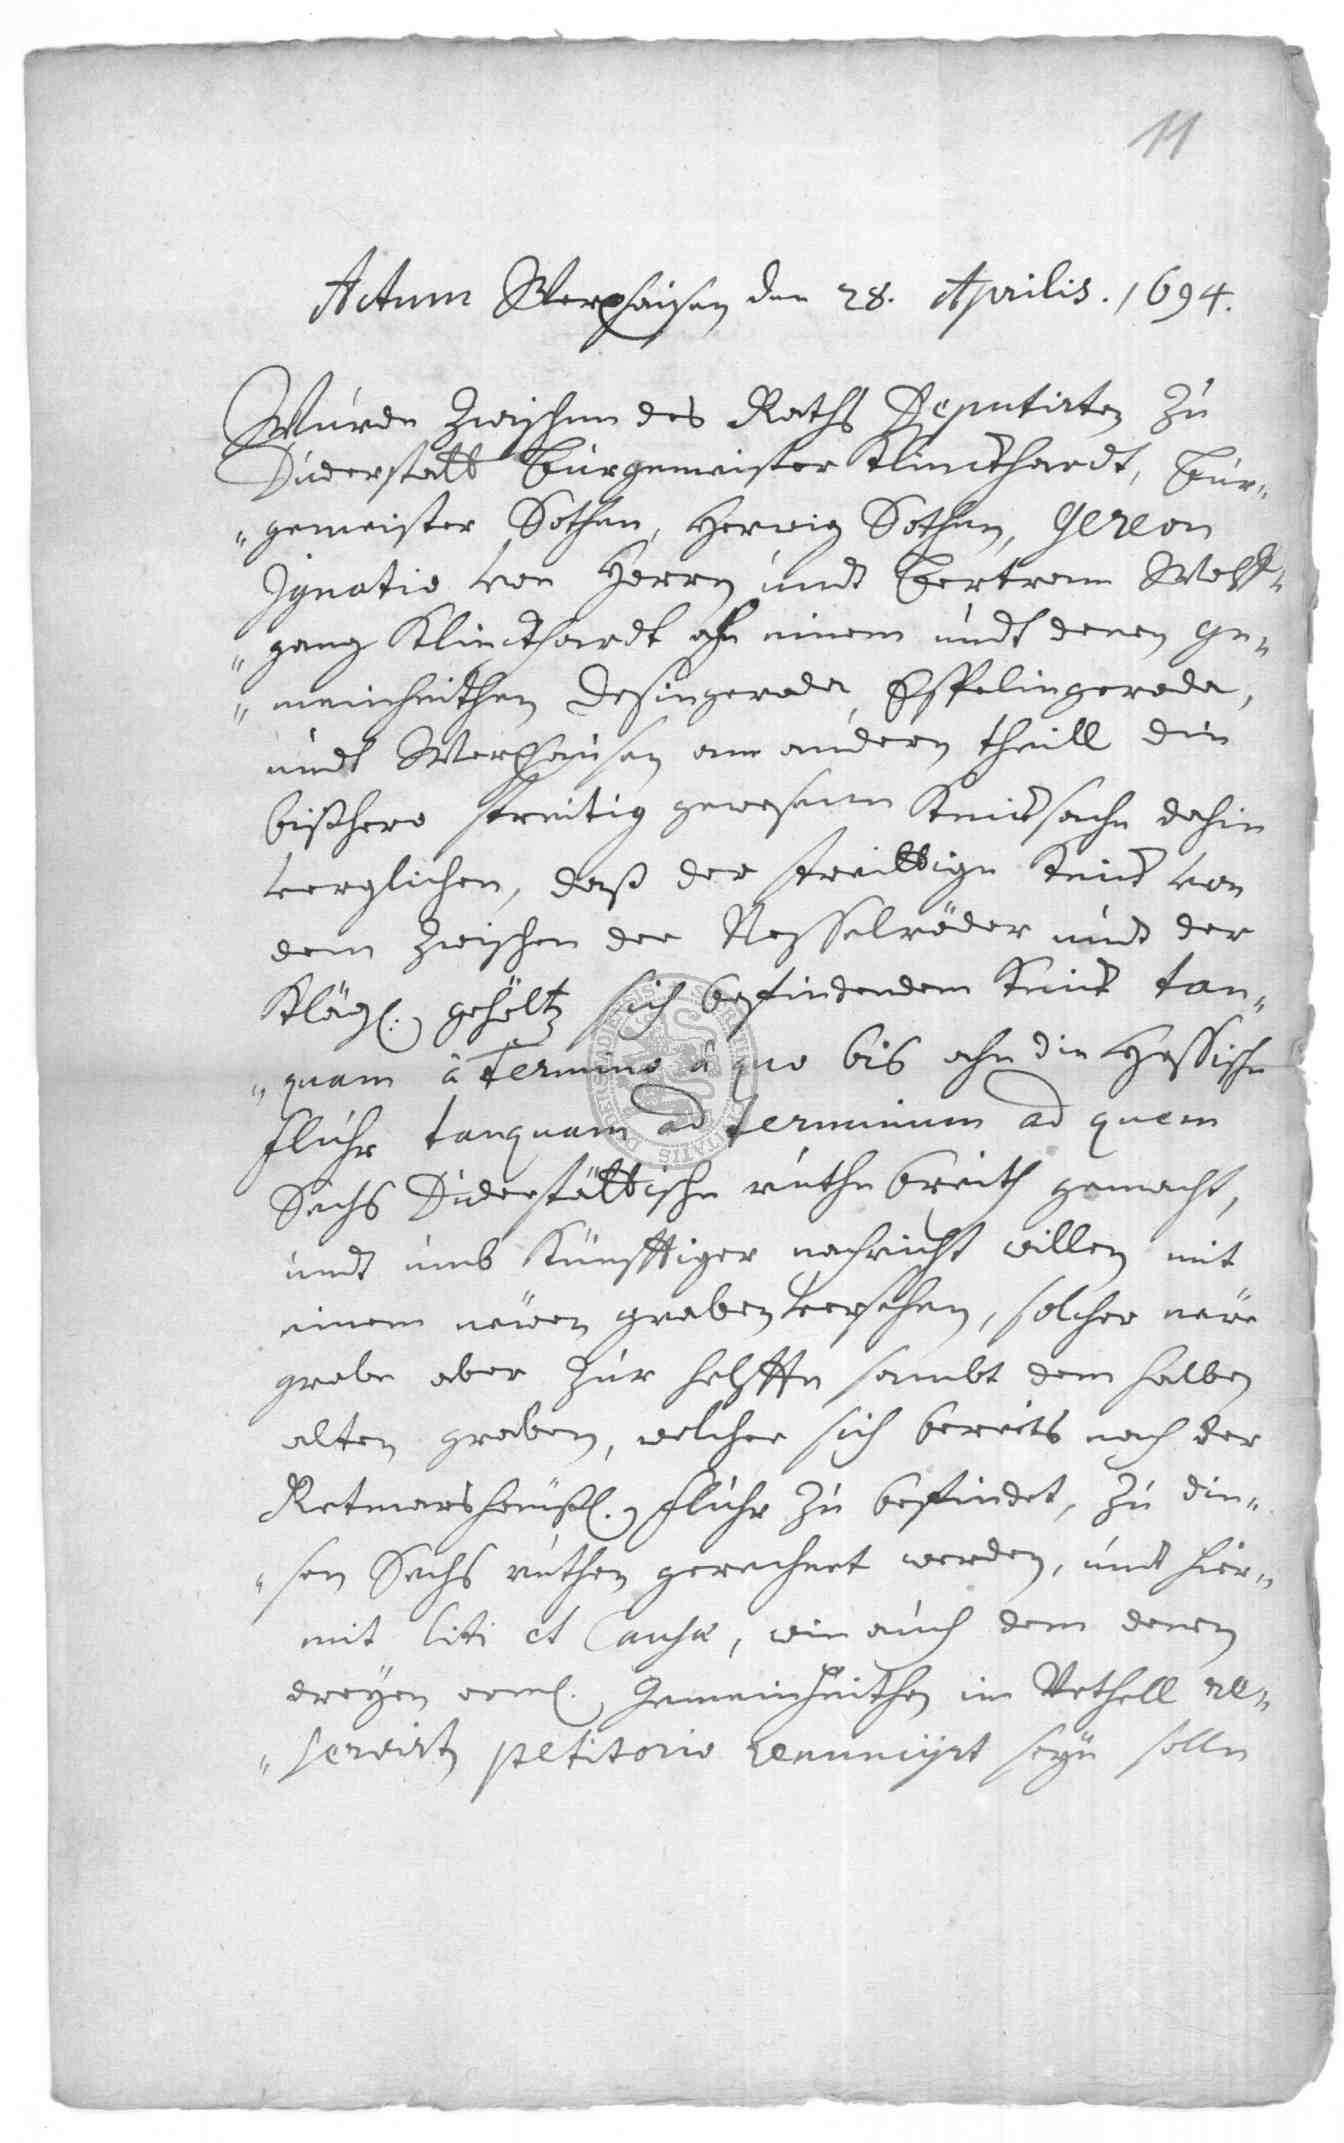 11
Actum Werxhausen den 28. Aprilis. 1694.
Wurde Zwischen des Raths Deputirten Zu
Duderstatt Burgemeister Klinckhardt, Bur-
gemeister Sothen, Herwig Sothen, Gereon
Ignatio von Horrn undt Bertram Wolff-
gang Klinckhardt ahn einem undt denen ge-
meinheithen Desingeroda, Esplingeroda,
undt Werxhausen am andern theill die
bißhero streitig gewesene Knicksache dahin
verglichen, daß der streittige Knick von
dem Zwischen der Nesselröder undt der
Kläg. gehöltz sich befindendem Knick tan-
quam à Termino à quo bis ahn die Hessische
fluhr tanquam ad terminum ad quem
Sechs Duderstättische ruthe breith gemacht,
undt umb künfftiger nachricht willen mit
einem newen graben versehen, solcher newe
grabe aber Zur helffte sambt dem halben
alten graben, welcher sich bereits nach der
Retmarshaüß. fluhr Zu befindet, Zu die-
sen Sechs ruthen gerechnet werden, undt hier-
mit liti et Causæ, wie auch dem denen
dreyen erml. Gemeinheithen im Vrtheill re-
servirten petitorio renuncijrt seyn solle